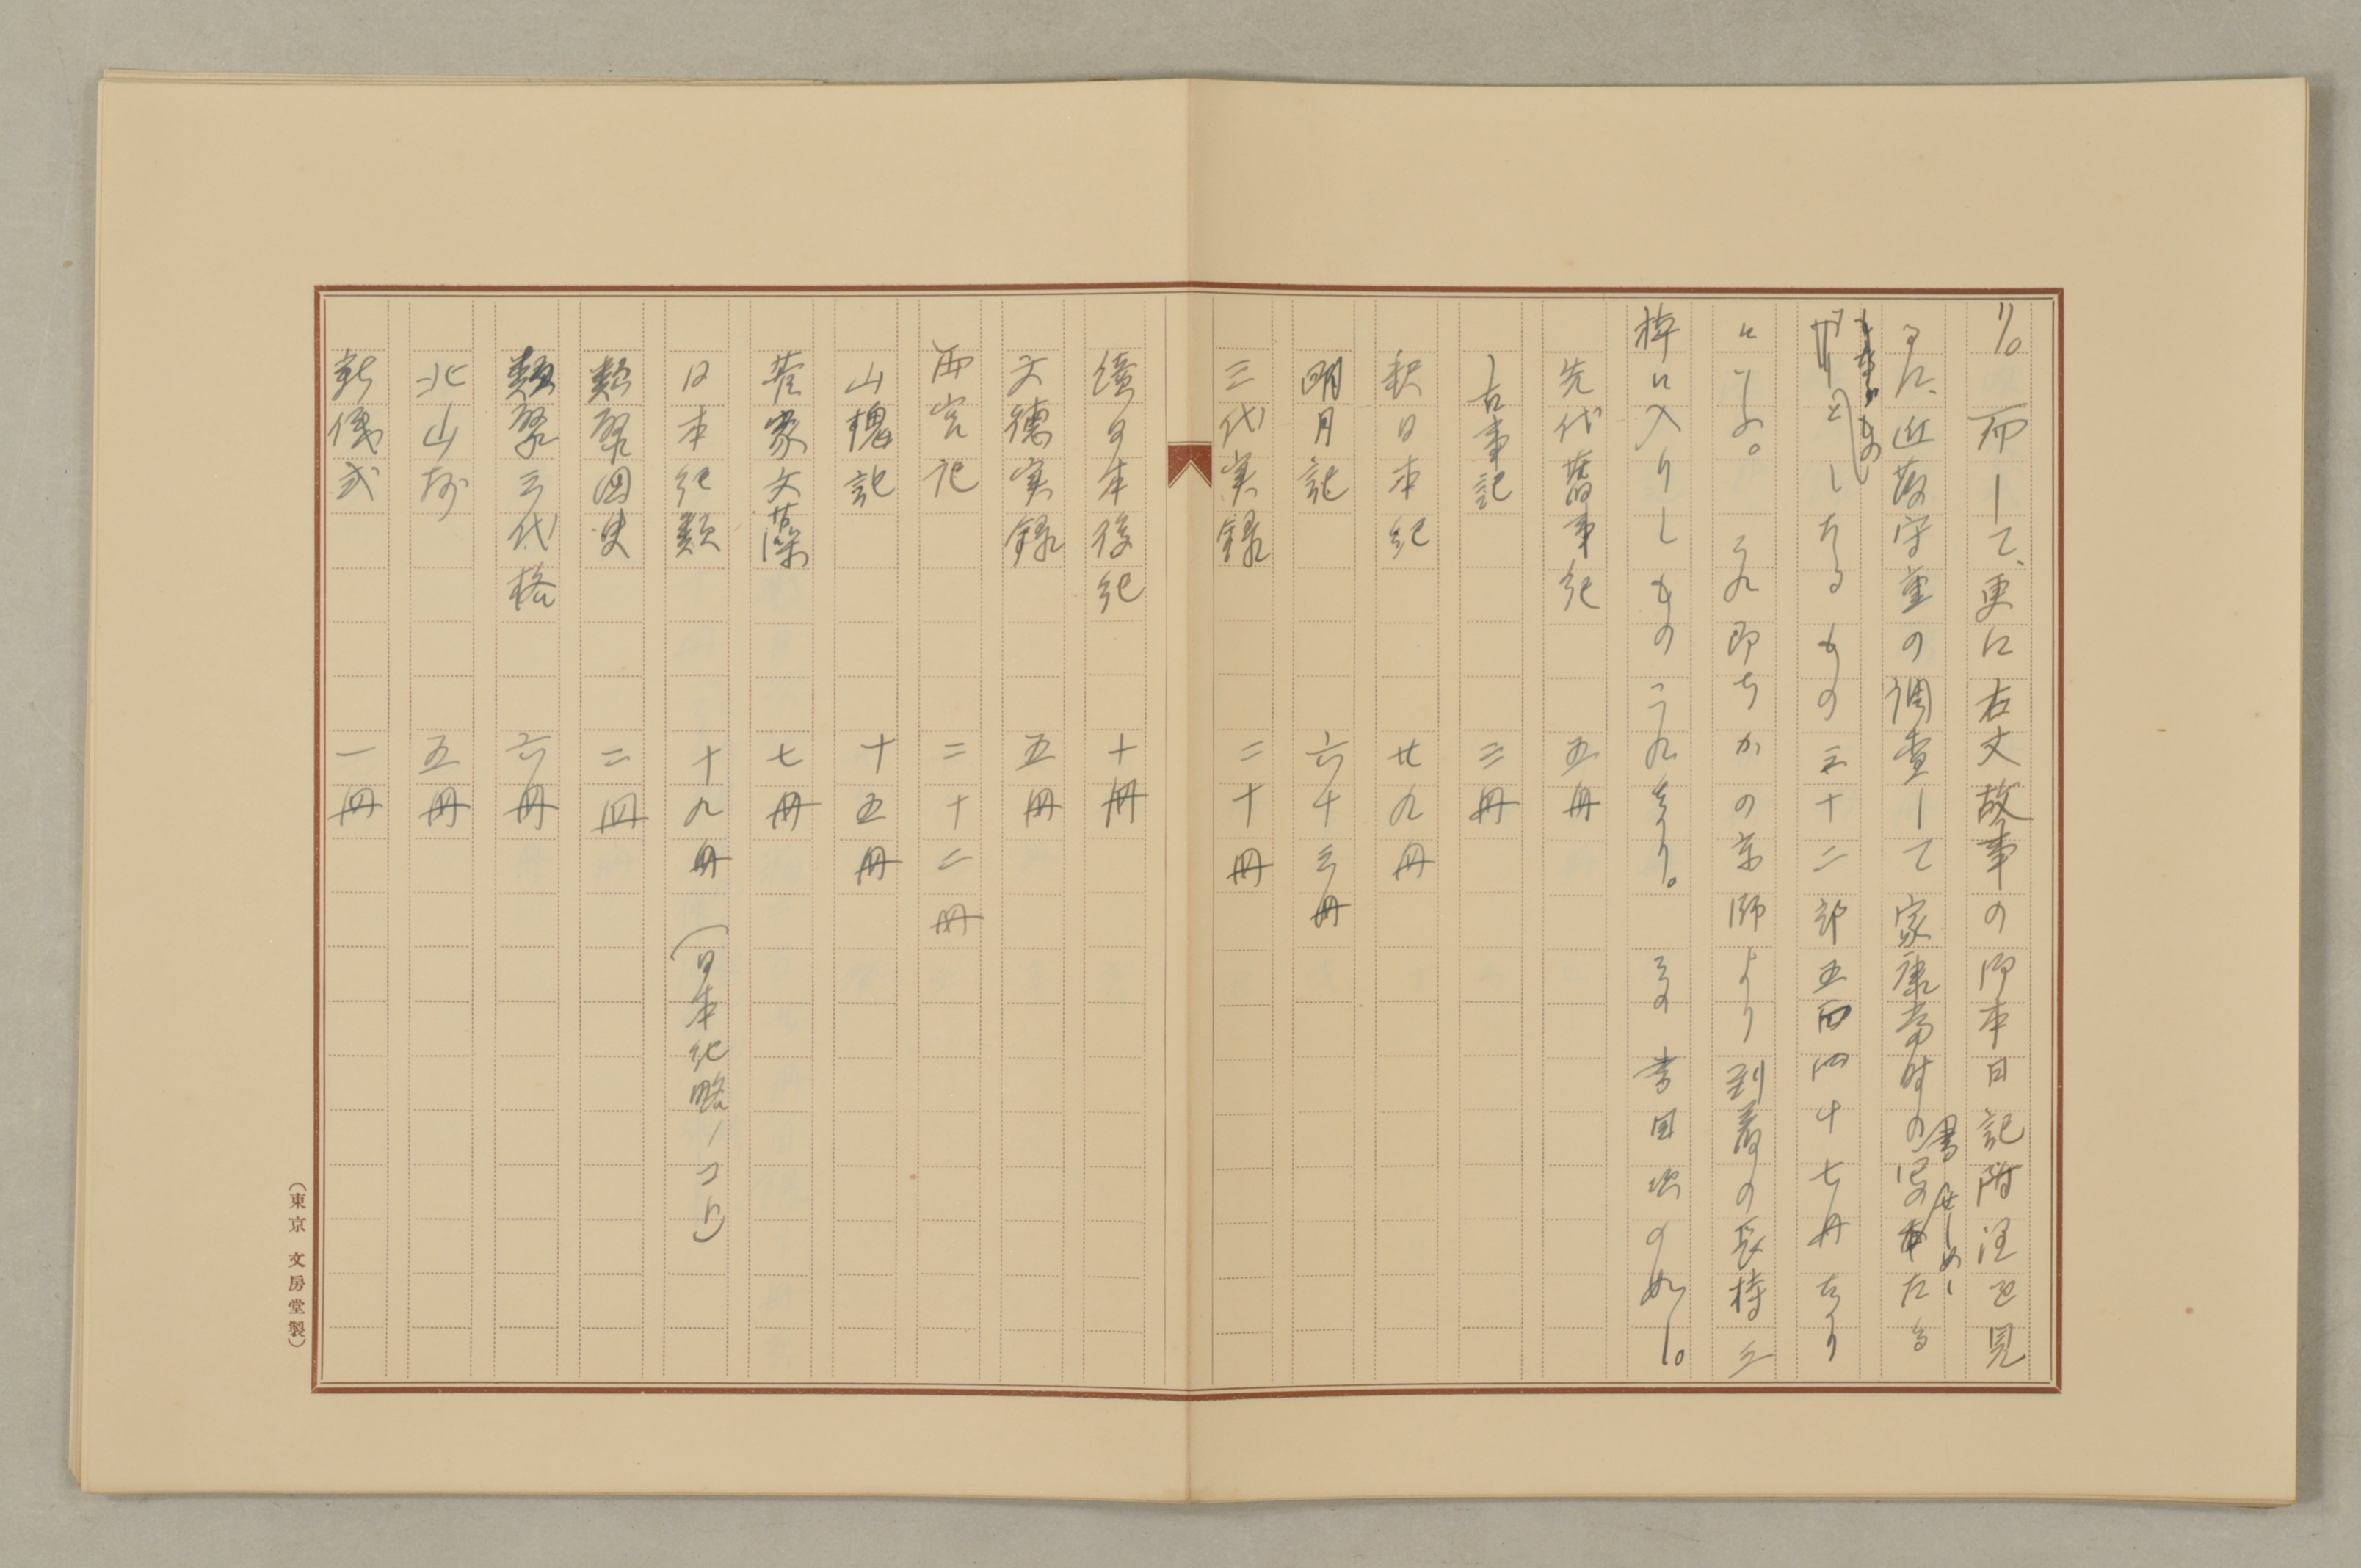 り。而して、更に右文故事の御本日記附注を見
るに、近藤守重の調査して家康当時の写本たる
書せしめし
ものなるもの
としたるもの三十二部五百四十七冊なり
といふ。これ即ちかの京師より到着の長持三
棹に入りしものこれなり。その書目次の如し。
先代舊事紀 五冊
古事記 三冊
釈日本紀 廿九冊
明月記 六十三冊
三代実録 二十冊
續日本後紀 十冊
文徳実録 五冊
西宮記 二十二冊
山槐記 十五冊
菅家文藻 七冊
日本紀類 十九冊(日本紀略ノコト)
類聚国史 二冊
類聚三代格 六冊
北山抄 五冊
新儀式 一冊
(東京 文房堂製)